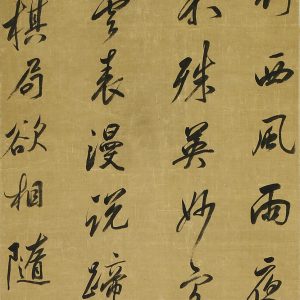 西風雨夜
殊英妙
雲表漫說蹄
棋局欲相隨